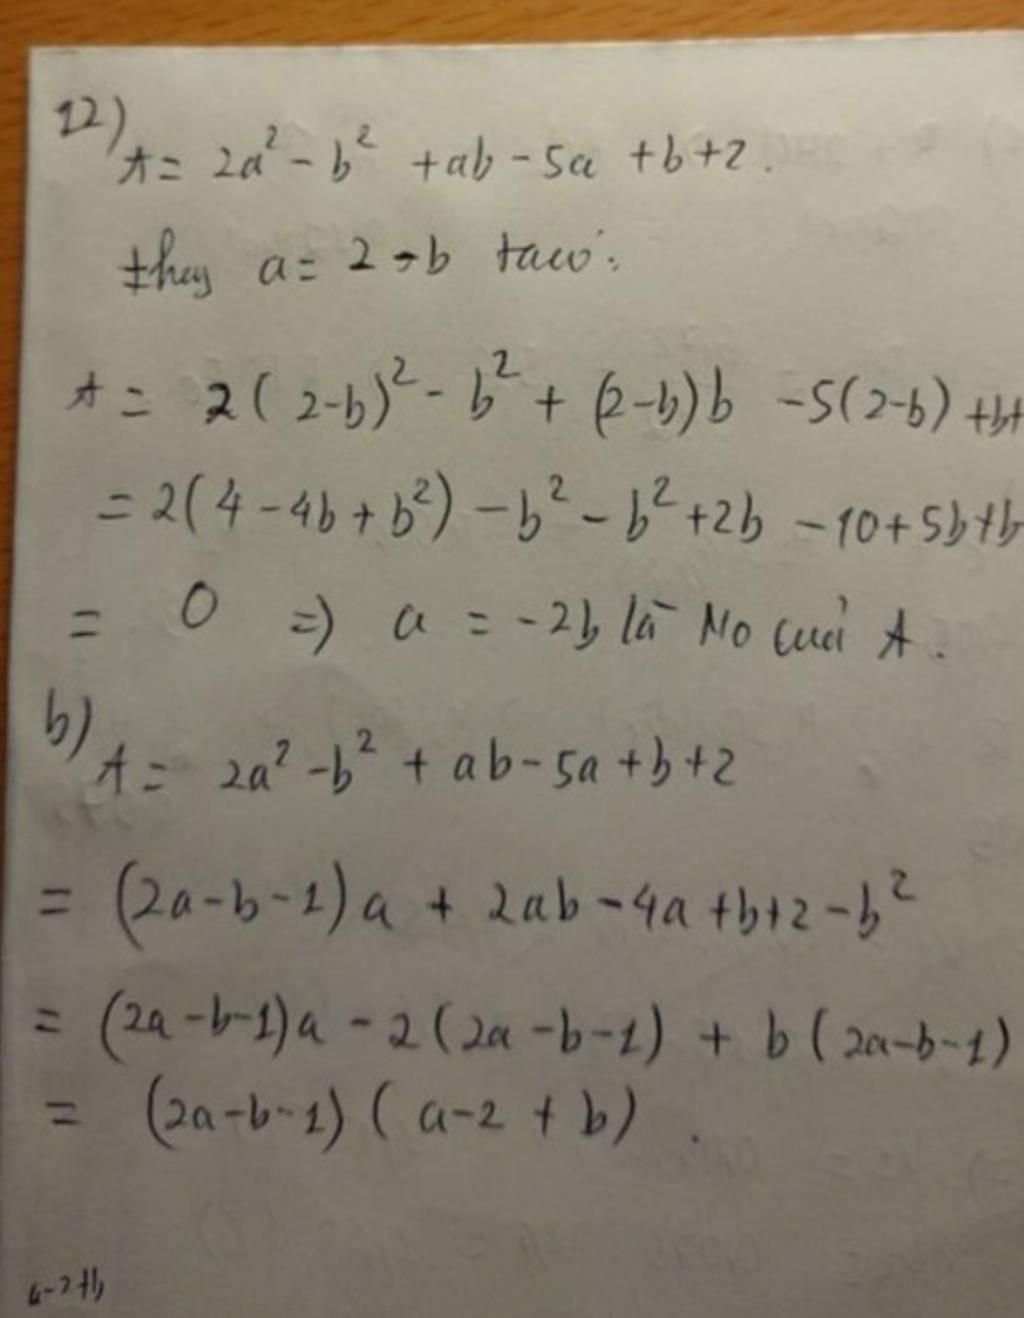 12)
A = 2a² - b² + ab - 5a + b + 2.
thay a = 2 - b ta có:
A = 2(2-b)² - b² + (2-b)b - 5(2-b) + b +
= 2(4 - 4b + b²) - b² - b² + 2b - 10 + 5b + b
= 0 => a = -2b là No của A.
b)
A = 2a² - b² + ab - 5a + b + 2
= (2a - b - 1)a + 2ab - 4a + b + 2 - b²
= (2a - b - 1)a - 2(2a - b - 1) + b(2a - b - 1)
= (2a - b - 1)(a - 2 + b).
a - 2 + b